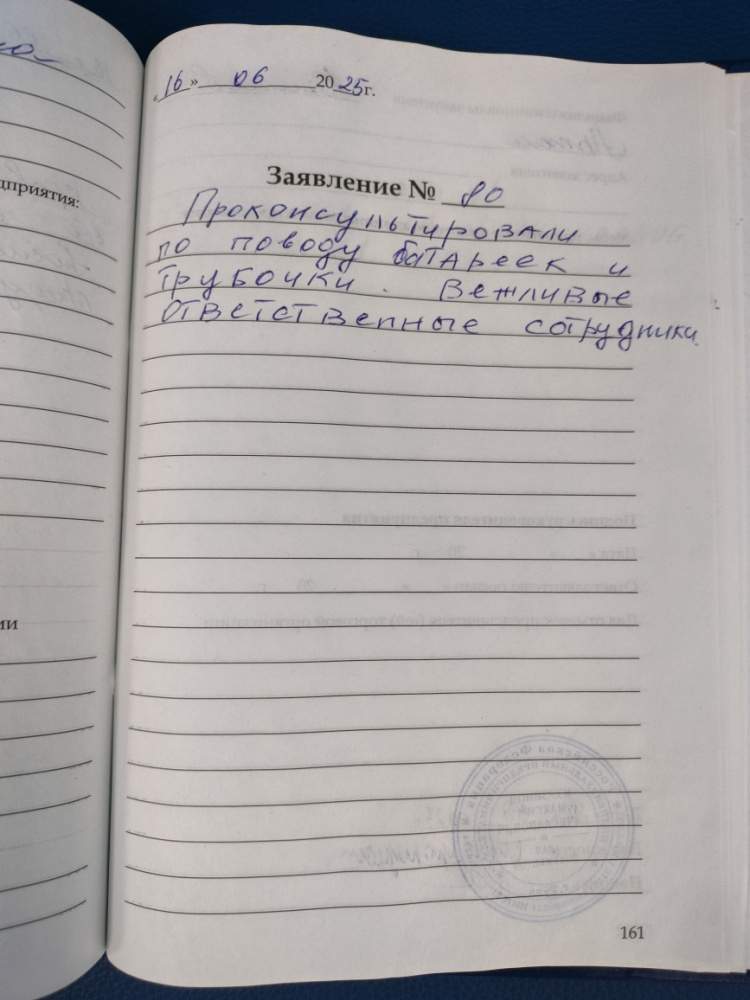 дприятия:
ии
«16» 06 2025г.
Заявление № 80
Проконсультировали
по поводу батареек и
трубочки. Вежливые
Ответственные сотрудники.
161